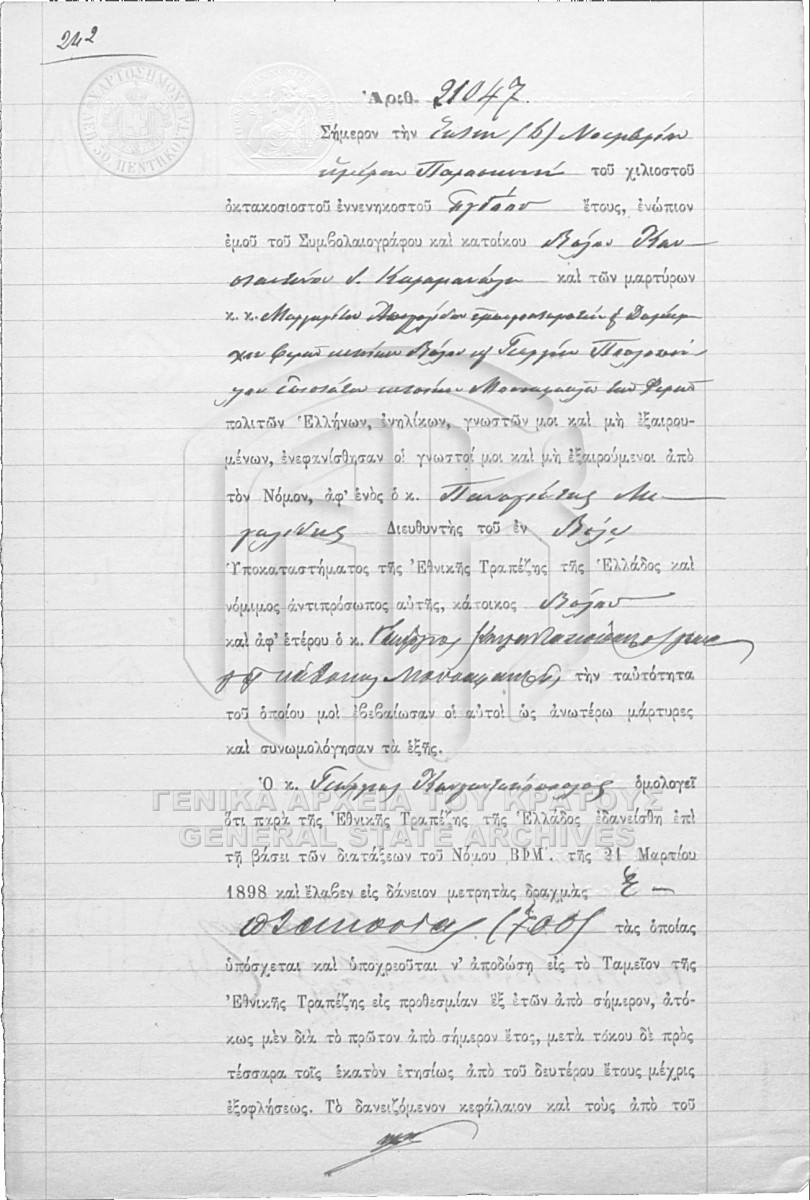 242
ΧΑΡΤΟΣΗΜΟΝ
50. ΠΕΝΤΗΚΟ
Ἀριθ. 21047.
Σήμερον τὴν ἕκτην (6) Νοεμβρίου
ἡμέραν Παρασκευὴν τοῦ χιλιοστοῦ
ὀκτακοσιοστοῦ ἐννενηκοστοῦ ὀγδόου ἔτους, ἐνώπιον
ἐμοῦ τοῦ Συμβολαιογράφου καὶ κατοίκου Βόλου Κων
σταντίνου Δ. καὶ τῶν μαρτύρων
κ. κ.
κατοίκου Βόλου Γεωργίου
κατοίκου
πολιτῶν Ἑλλήνων, ἐνηλίκων, γνωστῶν μοι καὶ μὴ ἐξαιρου-
μένων, ἐνεφανίσθησαν οἱ γνωστοί μοι καὶ μὴ ἐξαιρούμενοι ἀπὸ
τὸν Νόμον, ἀφ' ἑνὸς ὁ κ. Παναγιώτης Με-
Διευθυντὴς τοῦ ἐν Βόλῳ
Ὑποκαταστήματος τῆς Ἐθνικῆς Τραπέζης τῆς Ἑλλάδος καὶ
νόμιμος ἀντιπρόσωπος αὐτῆς, κάτοικος Βόλου
καὶ ἀφ' ἑτέρου ὁ κ. Γεώργιος
κάτοικος τὴν ταὐτότητα
τοῦ ὁποίου μοὶ ἐβεβαίωσαν οἱ αὐτοὶ ὡς ἀνωτέρω μάρτυρες
καὶ συνωμολόγησαν τὰ ἑξῆς.
Ὁ κ. Γεώργιος ὁμολογεῖ
ΓΕΝΙΚΑ ΑΡΧΕΙΑ ΤΟΥ ΚΡΑΤΟΥΣ
ὅτι παρὰ τῆς Ἐθνικῆς Τραπέζης τῆς Ἑλλάδος ἐδανείσθη ἐπὶ
GENERAL STATE ARCHIVES
τῇ βάσει τῶν διατάξεων τοῦ Νόμου ΒΦΜ'. τῆς 21 Μαρτίου
1898 καὶ ἔλαβεν εἰς δάνειον μετρητὰς δραχμὰς ἑ-
πτακοσίας (700) τὰς ὁποίας
ὑπόσχεται καὶ ὑποχρεοῦται ν' ἀποδώσῃ εἰς τὸ Ταμεῖον τῆς
Ἐθνικῆς Τραπέζης εἰς προθεσμίαν ἓξ ἐτῶν ἀπὸ σήμερον, ἀτό-
κως μὲν διὰ τὸ πρῶτον ἀπὸ σήμερον ἔτος, μετὰ τόκου δὲ πρὸς
τέσσαρα τοῖς ἑκατὸν ἐτησίως ἀπὸ τοῦ δευτέρου ἔτους μέχρις
ἐξοφλήσεως. Τὸ δανειζόμενον κεφάλαιον καὶ τοὺς ἀπὸ τοῦ